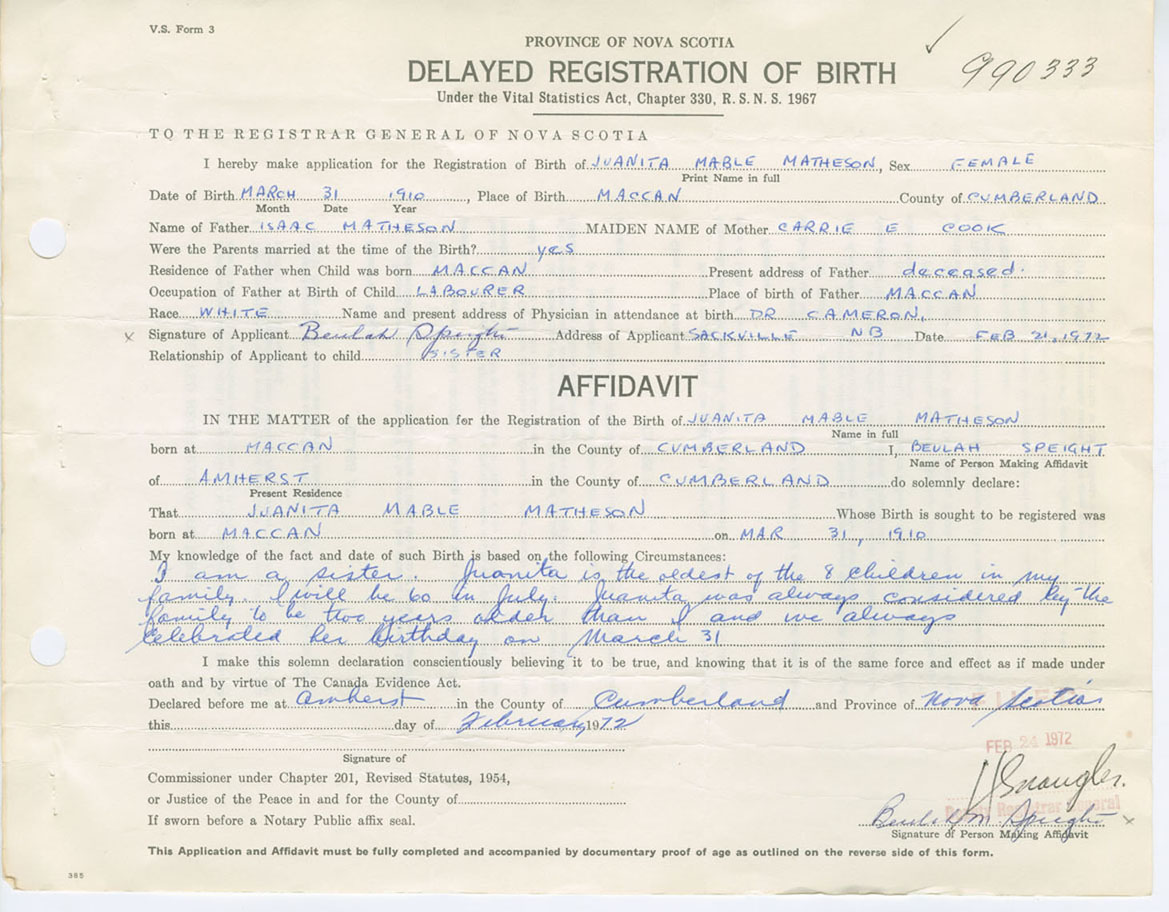 V.S. Form 3
PROVINCE OF NOVA SCOTIA
DELAYED REGISTRATION OF BIRTH
990333
Under the Vital Statistics Act, Chapter 330, R. S. N. S. 1967
TO THE REGISTRAR GENERAL OF NOVA SCOTIA
I hereby make application for the Registration of Birth of JUANITA MABLE MATHESON, Sex FEMALE
Print Name in full
Date of Birth MARCH 31 1910, Place of Birth MACCAN County of CUMBERLAND
Month Date Year
Name of Father ISAAC MATHESON MAIDEN NAME of Mother CARRIE E COOK
Were the Parents married at the time of the Birth? yes
Residence of Father when Child was born MACCAN Present address of Father deceased.
Occupation of Father at Birth of Child LABOURER Place of birth of Father MACCAN
Race WHITE Name and present address of Physician in attendance at birth DR CAMERON.
x Signature of Applicant Beulah Speight Address of Applicant SACKVILLE NB Date FEB 21, 1972
Relationship of Applicant to child SISTER
AFFIDAVIT
IN THE MATTER of the application for the Registration of the Birth of JUANITA MABLE MATHESON
Name in full
born at MACCAN in the County of CUMBERLAND I, BEULAH SPEIGHT
Name of Person Making Affidavit
of AMHERST in the County of CUMBERLAND do solemnly declare:
Present Residence
That JUANITA MABLE MATHESON Whose Birth is sought to be registered was
born at MACCAN on MAR 31, 1910
My knowledge of the fact and date of such Birth is based on the following Circumstances:
I am a sister. Juanita is the oldest of the 8 children in my
family. I will be 60 in July. Juanita was always considered by the
family to be two years older than I and we always
celebrated her birthday on March 31
I make this solemn declaration conscientiously believing it to be true, and knowing that it is of the same force and effect as if made under
oath and by virtue of The Canada Evidence Act.
Declared before me at Amherst in the County of Cumberland and Province of Nova Scotia
this day of February 1972
FEB 24 1972
Signature of
Commissioner under Chapter 201, Revised Statutes, 1954,
or Justice of the Peace in and for the County of
Deputy Registrar General
If sworn before a Notary Public affix seal.
Beulah M Speight x
Signature of Person Making Affidavit
This Application and Affidavit must be fully completed and accompanied by documentary proof of age as outlined on the reverse side of this form.
385